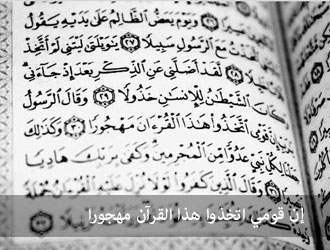 وَيَوْمَ يَعَضُّ الظَّالِمُ عَلَىٰ يَدَيْهِ يَقُولُ
اتَّخَذْتُ مَعَ الرَّسُولِ سَبِيلًا ٢٧ يَٰوَيْلَتَىٰ لَيْتَنِى لَمْ أَتَّخِذْ
لَّقَدْ أَضَلَّنِى عَنِ الذِّكْرِ بَعْدَ إِذْ جَآءَنِى
كَانَ الشَّيْطَٰنُ لِلْإِنسَٰنِ خَذُولًا ٢٩ وَقَالَ الرَّسُولُ
إِنَّ قَوْمِى اتَّخَذُوا۟ هَٰذَا الْقُرْءَانَ مَهْجُورًا ٣٠ وَكَذَٰلِكَ
جَعَلْنَا لِكُلِّ نَبِىٍّ عَدُوًّا مِّنَ الْمُجْرِمِينَ وَكَفَىٰ بِرَبِّكَ هَادِيًا
وَقَالَ الَّذِينَ كَفَرُوا۟ لَوْلَا نُزِّلَ عَلَيْهِ الْقُرْءَانُ جُمْلَةً
إن قومي اتخذوا هذا القرآن مهجورا